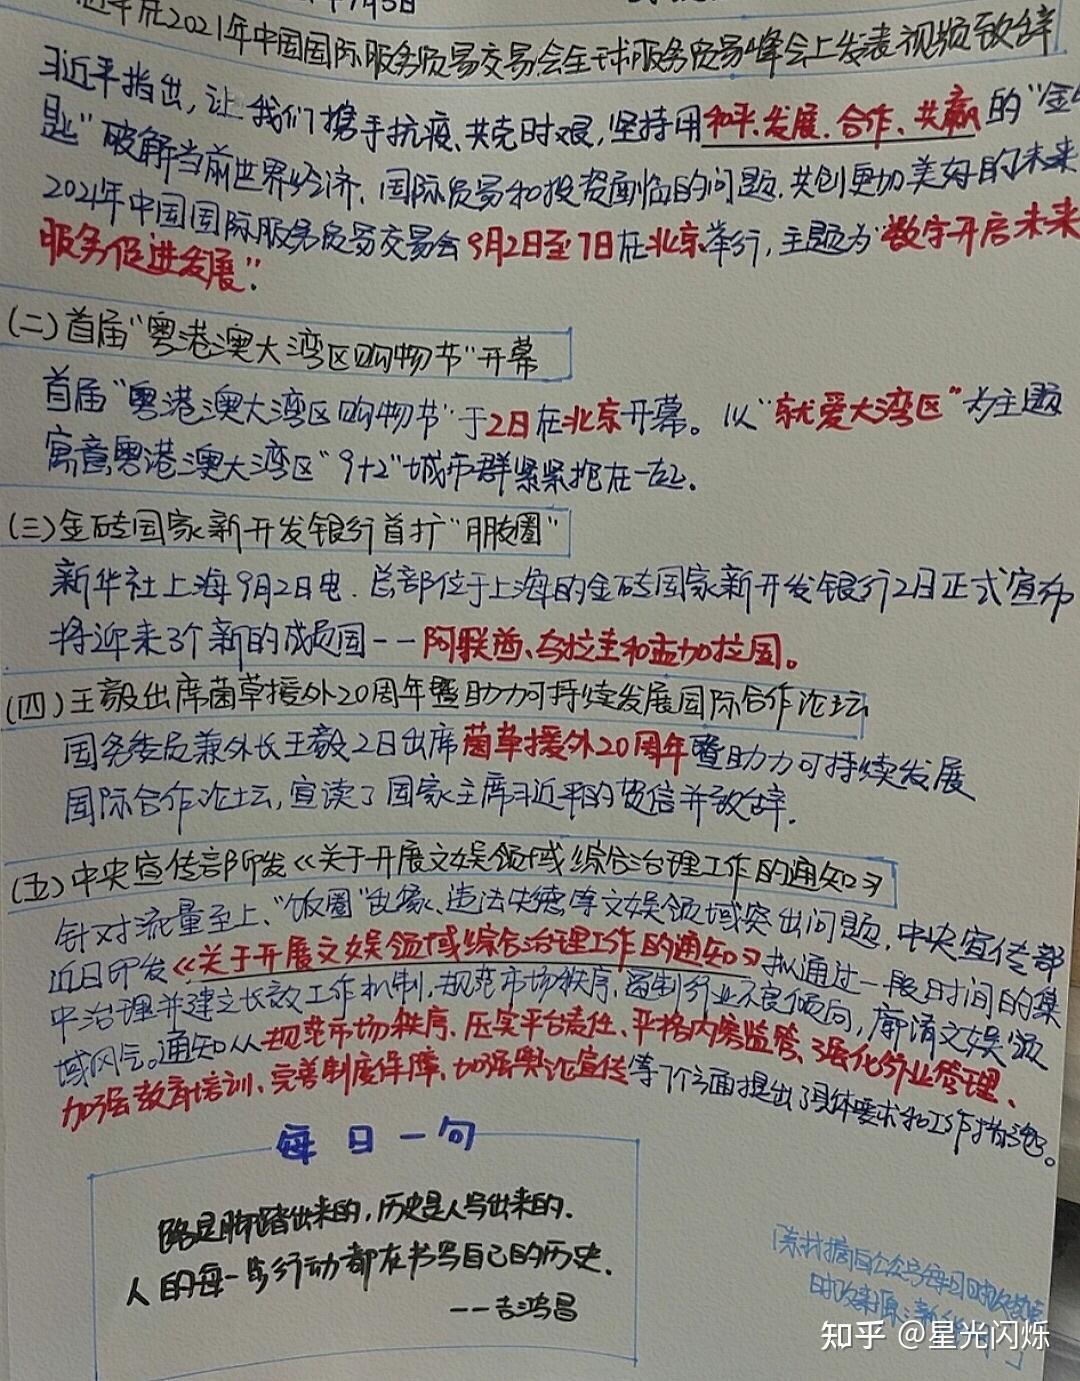 2021年中国国际服务贸易交易会全球服务贸易峰会上发表视频致辞
习近平指出，让我们携手抗疫、共克时艰，坚持用和平、发展、合作、共赢的“金
匙”破解当前世界经济、国际贸易和投资面临的问题，共创更加美好的未来
2021年中国国际服务贸易交易会9月2日至7日在北京举行，主题为“数字开启未来
服务促进发展”.
(二)首届“粤港澳大湾区购物节”开幕
首届“粤港澳大湾区购物节”于2日在北京开幕。以“就爱大湾区”为主题
寓意粤港澳大湾区“9+2”城市群紧紧抱在一起.
(三)金砖国家新开发银行首扩“朋友圈”
新华社上海9月2日电.总部位于上海的金砖国家新开发银行2日正式宣布
将迎来3个新的成员国--阿联酋、乌拉圭和孟加拉国。
(四)王毅出席菌草援外20周年暨助力可持续发展国际合作论坛
国务委员兼外长王毅2日出席菌草援外20周年暨助力可持续发展
国际合作论坛，宣读了国家主席习近平的贺信并致辞.
(五)中央宣传部印发《关于开展文娱领域综合治理工作的通知》
针对流量至上、“饭圈”乱象、违法失德等文娱领域突出问题，中央宣传部
近日印发《关于开展文娱领域综合治理工作的通知》拟通过一段时间的集
中治理并建立长效工作机制，规范市场秩序，遏制行业不良倾向，廓清文娱领
域风气。通知从规范市场秩序、压实平台责任、严格内容监管、强化行业管理、
加强教育培训、完善制度保障、加强舆论宣传等7个方面提出了具体要求和工作措施。
每日一句
路是脚踏出来的，历史是人写出来的.
人的每一步行动都在书写自己的历史.
--吉鸿昌
知乎 @星光闪烁